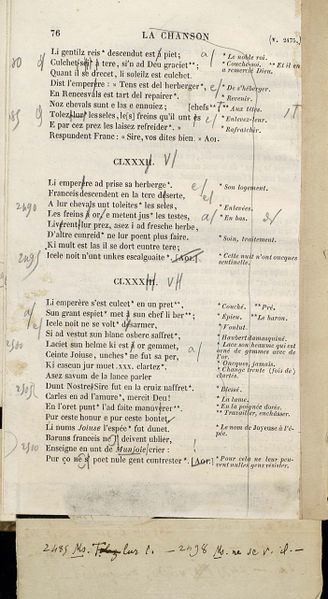 76 LA CHANSON (v. 2475.)
Li gentilz reis* descendut est a piet; * Le noble roi.
Culchet s' a tere, si'n ad Deu graciet**; * Couchésoi. ** Et il en a remercié Dieu.
Quant il se drecet, li soleilz est culchet.
Dist l'emperère : « Tens est del herberger*, * De s'héberger.
En Rencesvals est tart del repairer*. * Revenir.
Noz chevals sunt e las e ennuiez; [chefs** ** Aux têtes.
Tolez lur les seles, le[s] freins qu'il unt es * Enlevez-leur.
E par cez prez les laisez refreider*. » * Rafraîchir.
Respundent Franc : « Sire, vos dites bien. » Aoi.
CLXXXII. VI
Li emperère ad prise sa herberge*. * Son logement.
Franceis descendent en la tere déserte,
2490 A lur chevals unt toleites* les seles, * Enlevées.
Les freins à or e metent jus* les testes, * En bas.
Livèrent lur prez, asez i ad fresche herbe,
D'altre cunreid* ne lur poent plus faire. * Soin, traitement.
Ki mult est las il se dort cuntre tere;
2495 Icele noit n'unt unkes escalguaite*. [Aoi.] * Cette nuit n'ont oncques sentinelle.
CLXXXIII. VII
Li emperère s'est culcet* en un pret**, * Couché. ** Pré.
Sun grant espiet* met à sun chef li ber**; * Épieu. ** Le baron.
Icele noit ne se volt* désarmer, * Voulut.
Si ad vestut sun blanc osberc saffret*, * Haubert damasquiné.
2500 Laciet sun helme ki est à or gemmet, * Lace son heaume qui est orné de gemmes avec de l'or.
Ceinte Joiuse, unches* ne fut sa per, * Oncques, jamais.
Ki cascun jur muet .xxx. clartez*. * Change trente (fois de) clartés.
Asez savum de la lance parler
Dunt Nostre Sire fut en la cruiz naffret*. * Blessé.
2505 Carles en ad l'amure*, mercit Deu! * La lame.
En l'oret punt* l'ad faite manuvérer**. * En la poignée dorée. ** Travailler, enchâsser.
Pur ceste honur e pur ceste bontet
Li nums Joiuse l'espée* fut dunet. * Le nom de Joyeuse à l'épée.
Baruns franceis ne deivent ublier,
2510 Enseigne en unt de Munjoie crier :
Pur ço ne s poet nule gent cuntrester*. [Aoi.] * Pour cela ne leur peuvent nulles gens résister.
2485 Ms. lur l. — 2498 Ms. ne se v. il. —